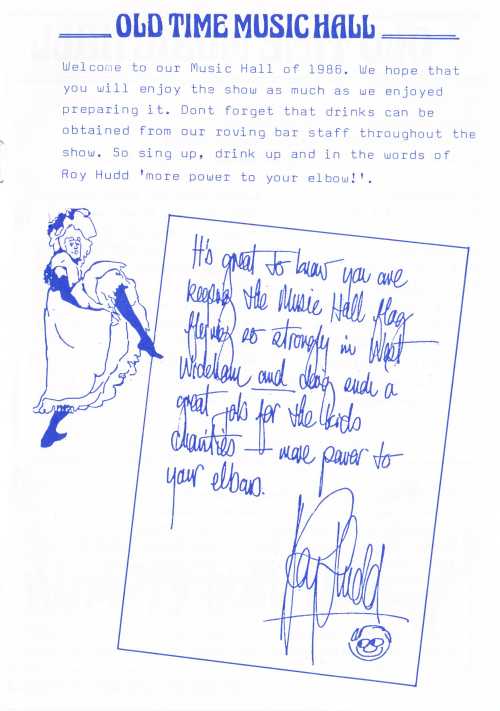 OLD TIME MUSIC HALL
Welcome to our Music Hall of 1986. We hope that
you will enjoy the show as much as we enjoyed
preparing it. Dont forget that drinks can be
obtained from our roving bar staff throughout the
show. So sing up, drink up and in the words of
Roy Hudd 'more power to your elbow!'.
It's great to know you are
keeping the Music Hall flag
flying so strongly in West
Wickham and doing such a
great job for the kids
charities — more power to
your elbows.
Roy Hudd